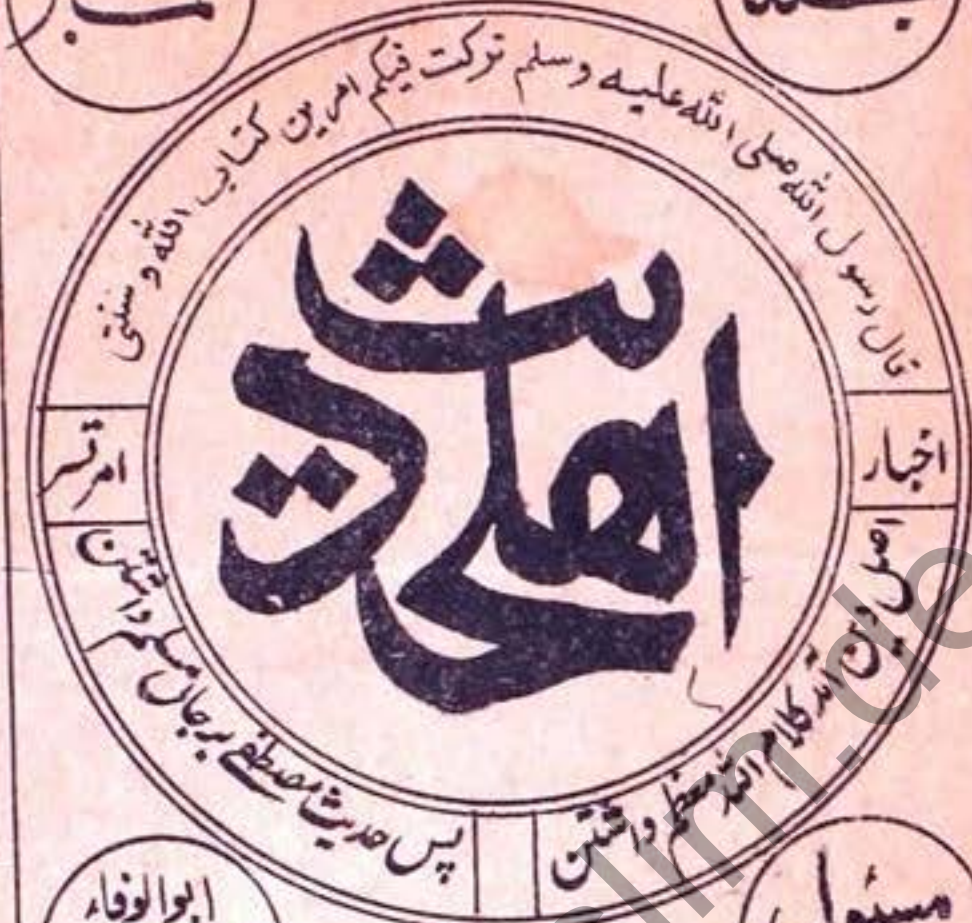 قال رسول الله صلى الله عليه وسلم تركت فيكم امرين كتاب الله و سنتی
اخبار
اهلحدیث
امرتسر
اصل دین آمد کلام اللہ معظم داشتن
پس حدیث مصطفے بر جاں مسلم داشتن
ابوالوفاء